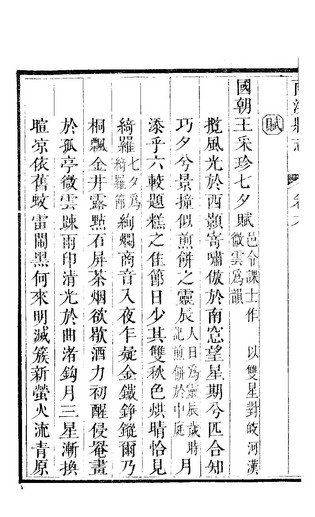 賦
國朝王采珍七夕賦邑令課士作 以雙星對岐河漢微雲爲韻
攬風光於西顥寄嘯傲於南窓望星期兮匹合知
巧夕兮景撞似煎餅之靈辰人日爲靈辰歲時記煎餅於中庭月
添乎六較題糕之佳節日少其雙秋色烘晴恰見
綺羅七夕爲綺羅節絢爛商音入夜乍凝金鐵錚鏦爾乃
桐飄金井露點石屏茶烟欲歇酒力初醒倚菴畫
於孤亭微雲踈雨印清光於曲渚鈎月三星漸換
暄凉依舊蚊雷鬧黑何來明滅簇新螢火流青原